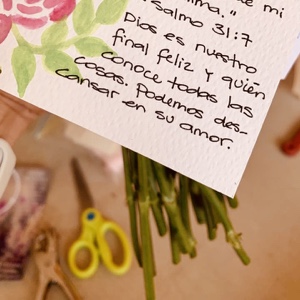 de mi
alma."
Salmo 31:7
Dios es nuestro
final feliz y quién
conoce todas las
cosas. Podemos des-
cansar en su amor.